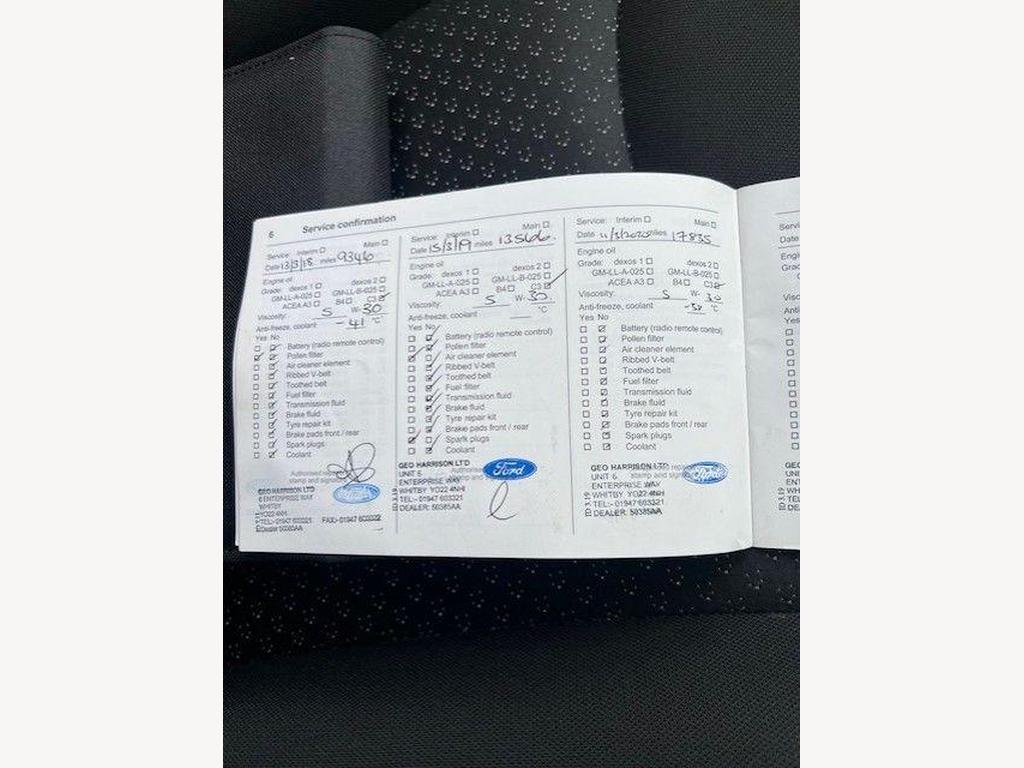 6 Service confirmation
Service: Interim Main
Date 13/3/18 miles 9346
Engine oil
Grade: dexos 1 dexos 2
GM-LL-A-025 GM-LL-B-025
ACEA A3 B4 C3
Viscosity: 5 W- 30
Anti-freeze, coolant -41 °C
Yes No
Battery (radio remote control)
Pollen filter
Air cleaner element
Ribbed V-belt
Toothed belt
Fuel filter
Transmission fluid
Brake fluid
Tyre repair kit
Brake pads front / rear
Spark plugs
Coolant
Authorised
stamp and
GEO HARRISON LTD
6 ENTERPRISE WAY
WHITBY
YO22 4NH
TEL:- 01947 603321 FAX:- 01947
Dealer 50385AA
Service: Interim Main
Date 15/3/19 miles 13566
Engine oil
Grade: dexos 1 dexos 2
GM-LL-A-025 GM-LL-B-025
ACEA A3 B4 C3
Viscosity: 5 W- 30
Anti-freeze, coolant °C
Yes No
Battery (radio remote control)
Pollen filter
Air cleaner element
Ribbed V-belt
Toothed belt
Fuel filter
Transmission fluid
Brake fluid
Tyre repair kit
Brake pads front / rear
Spark plugs
Coolant
GEO HARRISON LTD
UNIT 6
ENTERPRISE WAY
WHITBY YO22 4NH
TEL:- 01947 603321
DEALER: 50385AA
ED 3.19
Ford
Service: Interim Main
Date 11/3/2020 miles 17835
Engine oil
Grade: dexos 1 dexos 2
GM-LL-A-025 GM-LL-B-025
ACEA A3 B4 C3
Viscosity: 5 W- 30
Anti-freeze, coolant °C
Yes No
Battery (radio remote control)
Pollen filter
Air cleaner element
Ribbed V-belt
Toothed belt
Fuel filter
Transmission fluid
Brake fluid
Tyre repair kit
Brake pads front / rear
Spark plugs
Coolant
GEO HARRISON LTD
UNIT 6
ENTERPRISE WAY
WHITBY YO22 4NH
TEL:- 01947 603321
DEALER: 50385AA
ED 3.19
Ford